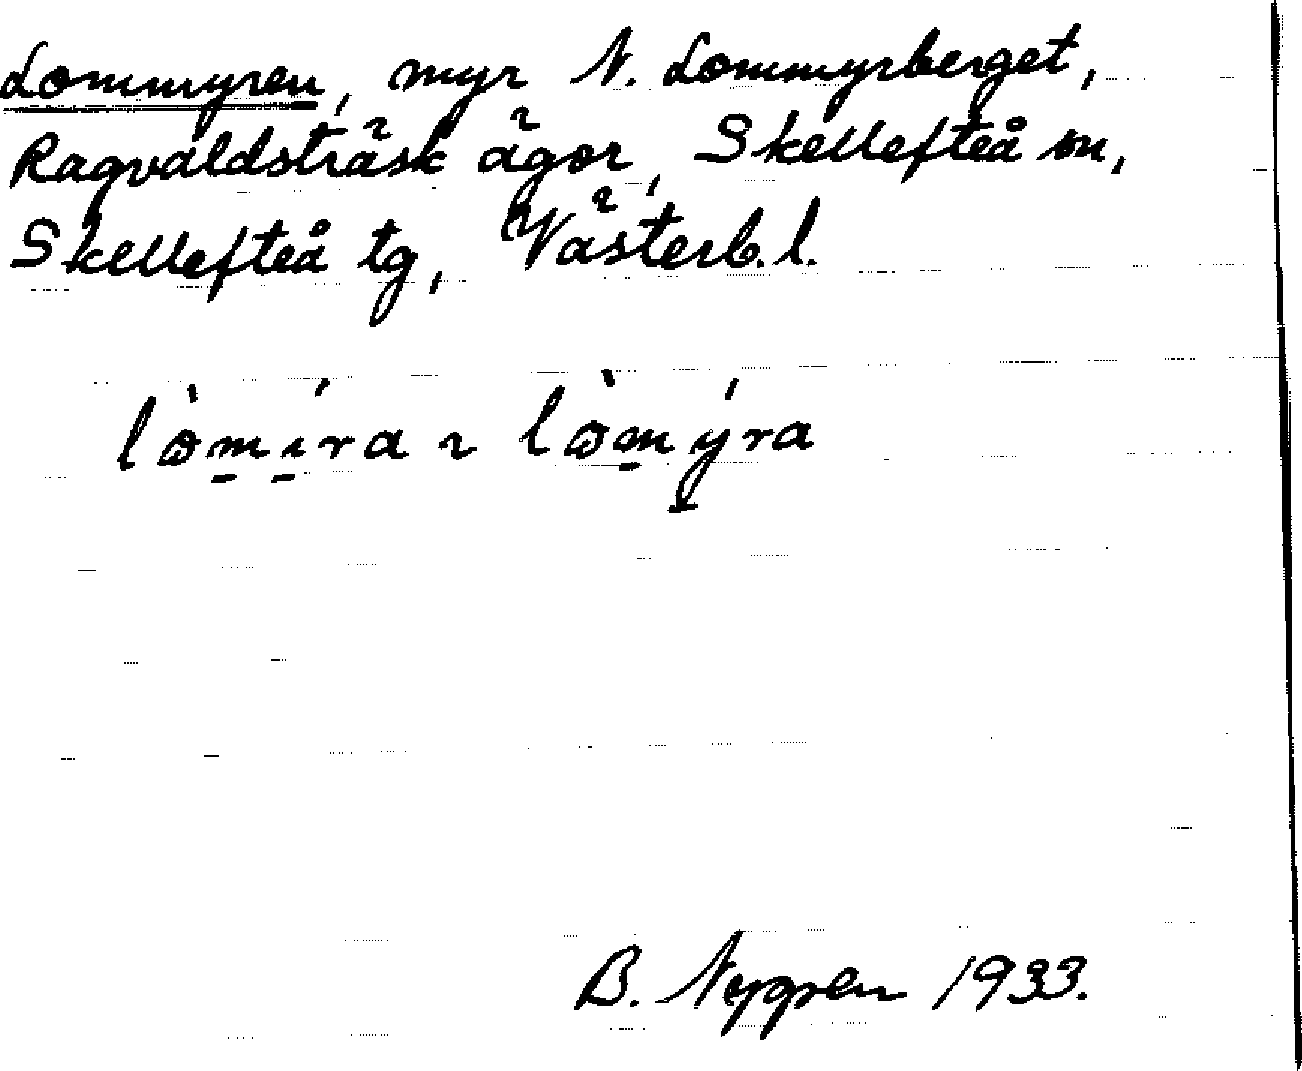 Lommyren, myr N. Lommyrberget,
Ragvaldsträsk ägor, Skellefteå sn,
Skellefteå tg, Västerb. l.
lò̀m̱í̱ra ~ lòm̱ýra
B. Nygren 1933.